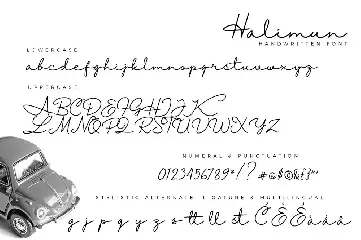 Halimun
HANDWRITTEN FONT
LOWERCASE
abcdefghijklmnopqrstuvwxyz
UPPERCASE
ABCDEFGHIJK
LMNOPQRSTUVWXYZ
NUMERAL & PUNCTUATION
0123456789*!?
STYLISTIC ALTERNATE, LIGATURE & MULTILINGUAL
g j p y z